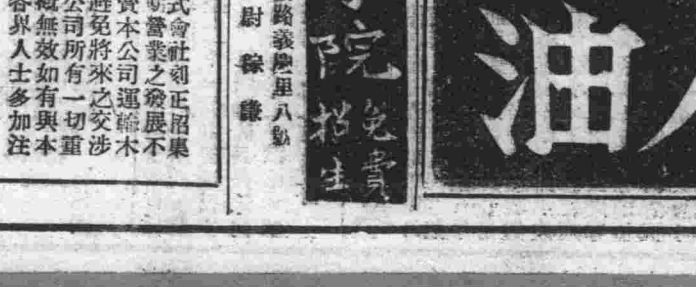 油
院
免費
招生
路義慶里八號
尉 稼 謙
式會社刻正招集
營業之發展不
資本公司運輸木
避免將來之交涉
公司所有一切重
概無效如有與本
各界人士多加注